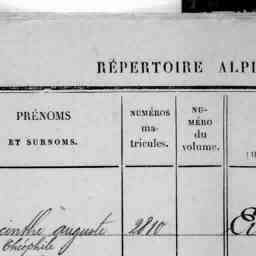 RÉPERTOIRE ALP
PRÉNOMS
ET SURNOMS.
NUMÉROS
ma-
tricules.
NU-
MÉRO
du
volume.
cinthe auguste 2810
Théophile